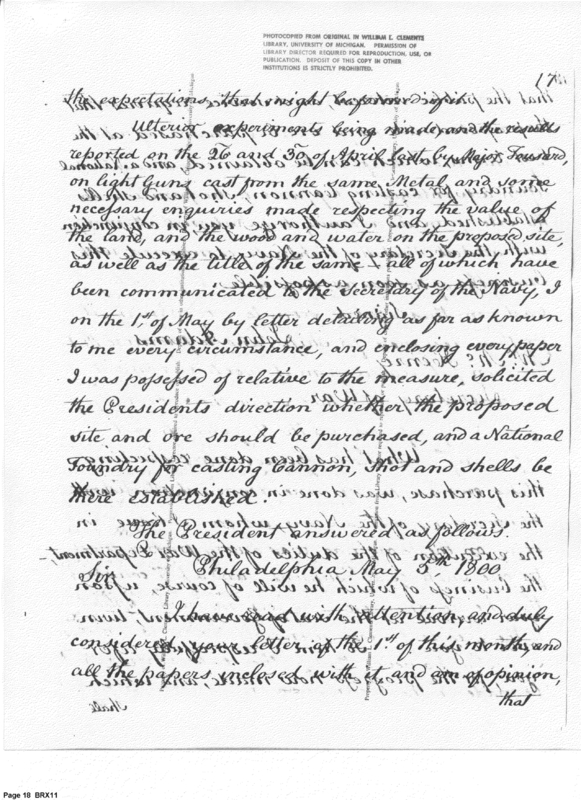 PHOTOCOPIED FROM ORIGINAL IN WILLIAM L. CLEMENTS
LIBRARY, UNIVERSITY OF MICHIGAN. PERMISSION OF
LIBRARY DIRECTOR REQUIRED FOR REPRODUCTION, USE, OR
PUBLICATION. DEPOSIT OF THIS COPY IN OTHER
INSTITUTIONS IS STRICTLY PROHIBITED.
17
the expectations, that might be formed of it.
Ulterior experiments being made, and the results
reported on the 26 and 30 of April last by Major Toussard,
on light Guns cast from the same Metal, and some
necessary enquiries made respecting the value of
the land, and the wood and water on the proposed site,
as well as the title of the same – all of which have
been communicated to the Secretary of the Navy, I
on the 1st of May by letter detailing as far as known
to me every circumstance, and enclosing every paper
I was possessed of relative to the measure, solicited
the Presidents direction whether the proposed
site and ore should be purchased, and a National
Foundry for casting Cannon, shot and shells be
there established.
The President answered as follows.
Philadelphia May 5th 1800
Sir
I have read with attention, and duly
considered your letter of the 1st of this month, and
all the papers inclosed with it, and am of opinion,
that
Page 18 BRX11